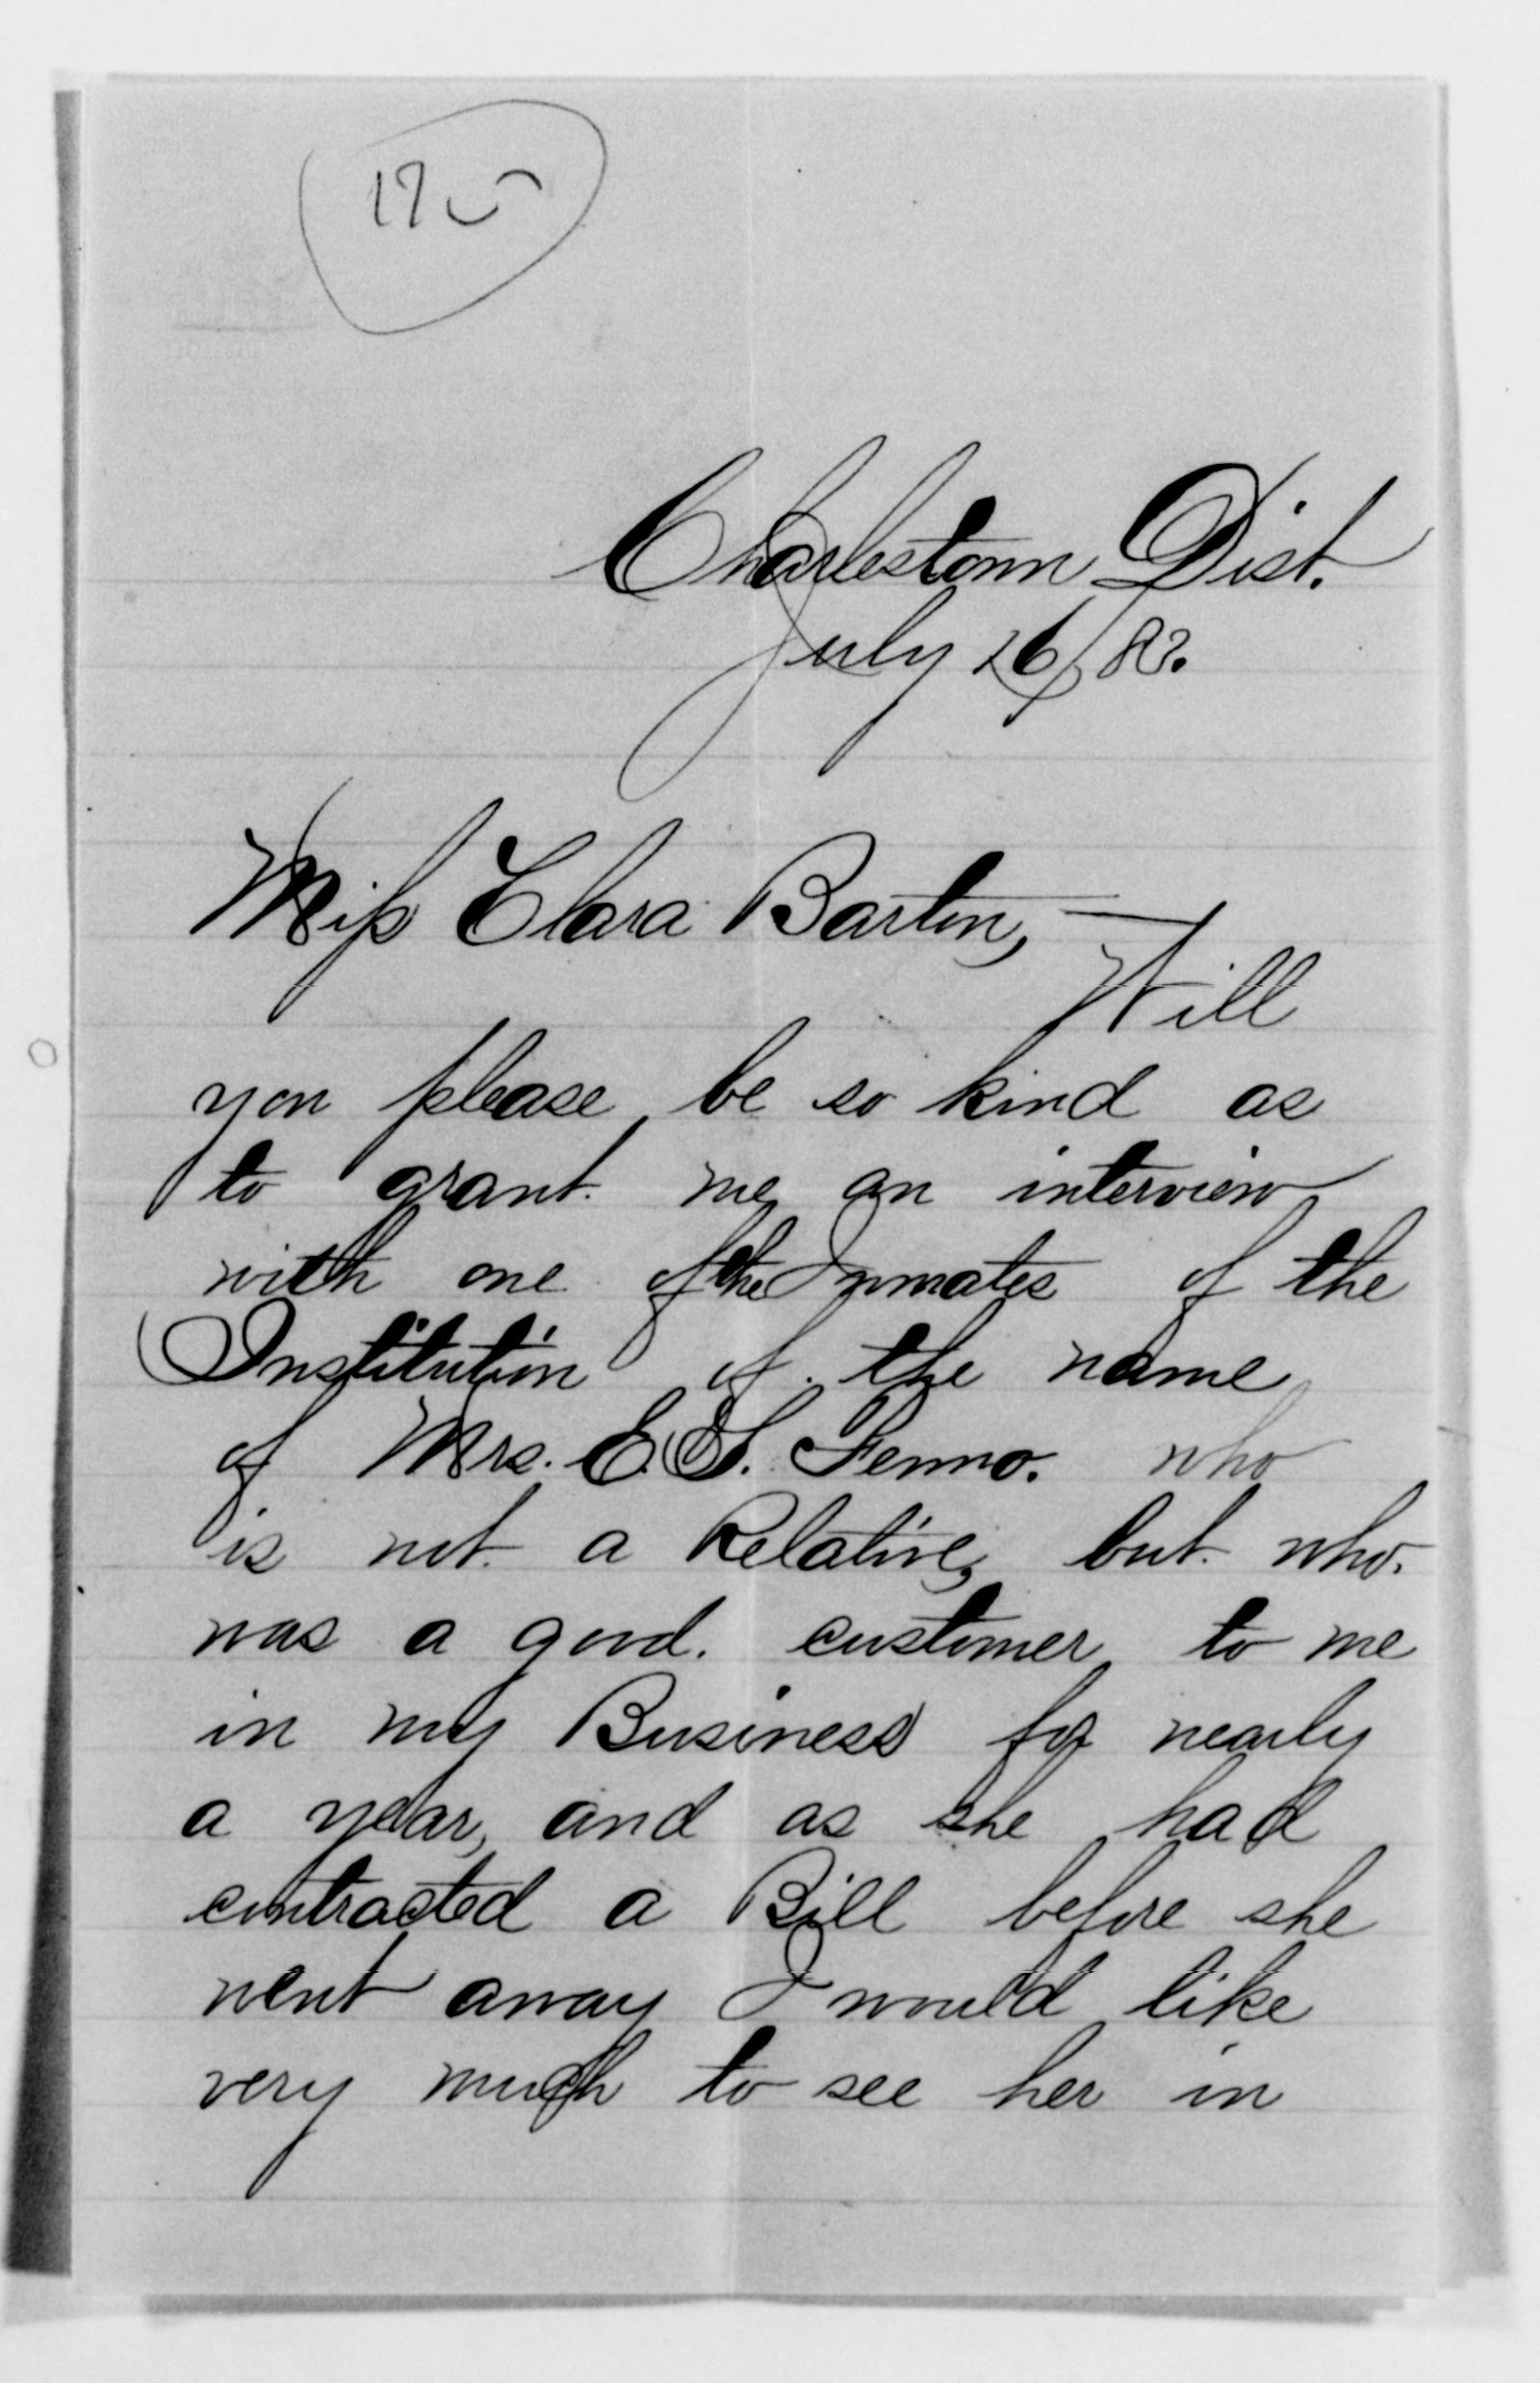 175
Charlestown Dist.
July 26/83.
Miss Clara Barton, —
Will
you please be so kind as
to grant me an interview
with one of the Inmates of the
Institution of the name
of Mrs. E. S. Fenno. who
is not a Relative, but who.
was a good. customer to me
in my Business for nearly
a year, and as she had
contracted a Bill before she
went away I would like
very much to see her in